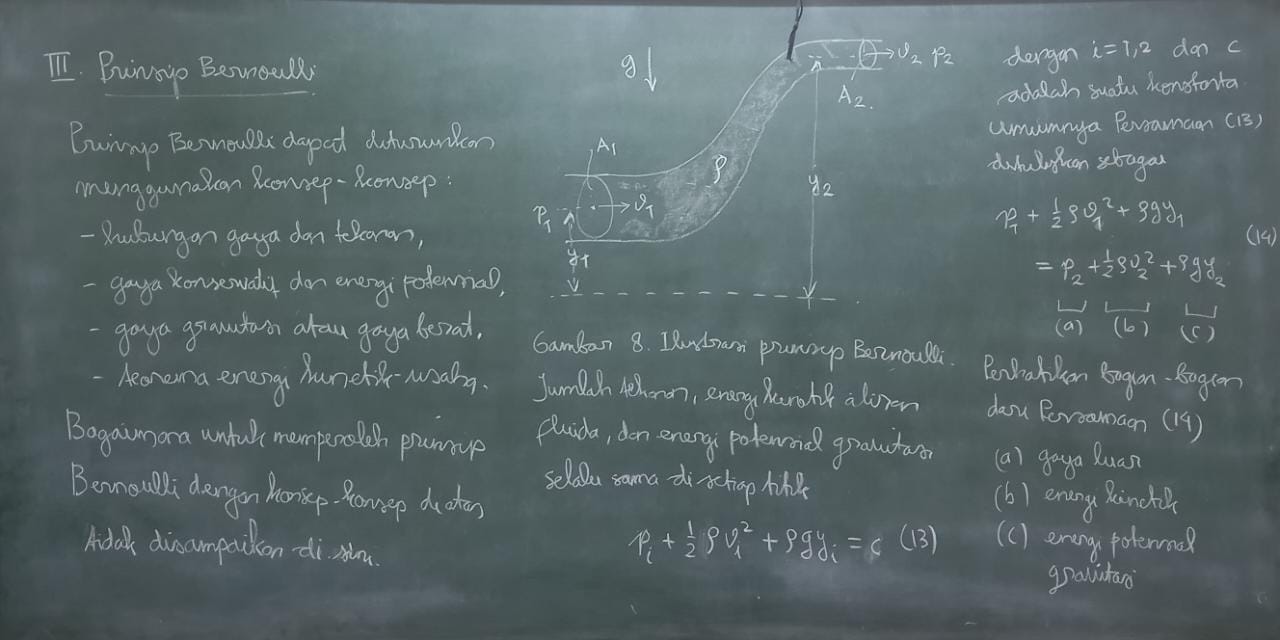 III. Prinsip Bernoulli
Prinsip Bernoulli dapat diturunkan
menggunakan konsep-konsep :
- hubungan gaya dan tekanan,
- gaya konservatif dan energi potensial,
- gaya gravitasi atau gaya berat,
- teorema energi kinetik-usaha.
Bagaimana untuk memperoleh prinsip
Bernoulli dengan konsep-konsep di atas
tidak disampaikan di sini.
g
A₁
p₁
v₁
y₁
ρ
v₂ p₂
A₂
y₂
Gambar 8. Ilustrasi prinsip Bernoulli.
Jumlah tekanan, energi kinetik aliran
fluida, dan energi potensial gravitasi
selalu sama di setiap titik
pᵢ + ½ ρvᵢ² + ρgyᵢ = c (13)
dengan i = 1, 2 dan c
adalah suatu konstanta.
Umumnya Persamaan (13)
dituliskan sebagai
p₁ + ½ ρv₁² + ρgy₁
= p₂ + ½ ρv₂² + ρgy₂ (14)
(a) (b) (c)
Perhatikan bagian-bagian
dari Persamaan (14)
(a) gaya luar
(b) energi kinetik
(c) energi potensial
gravitasi